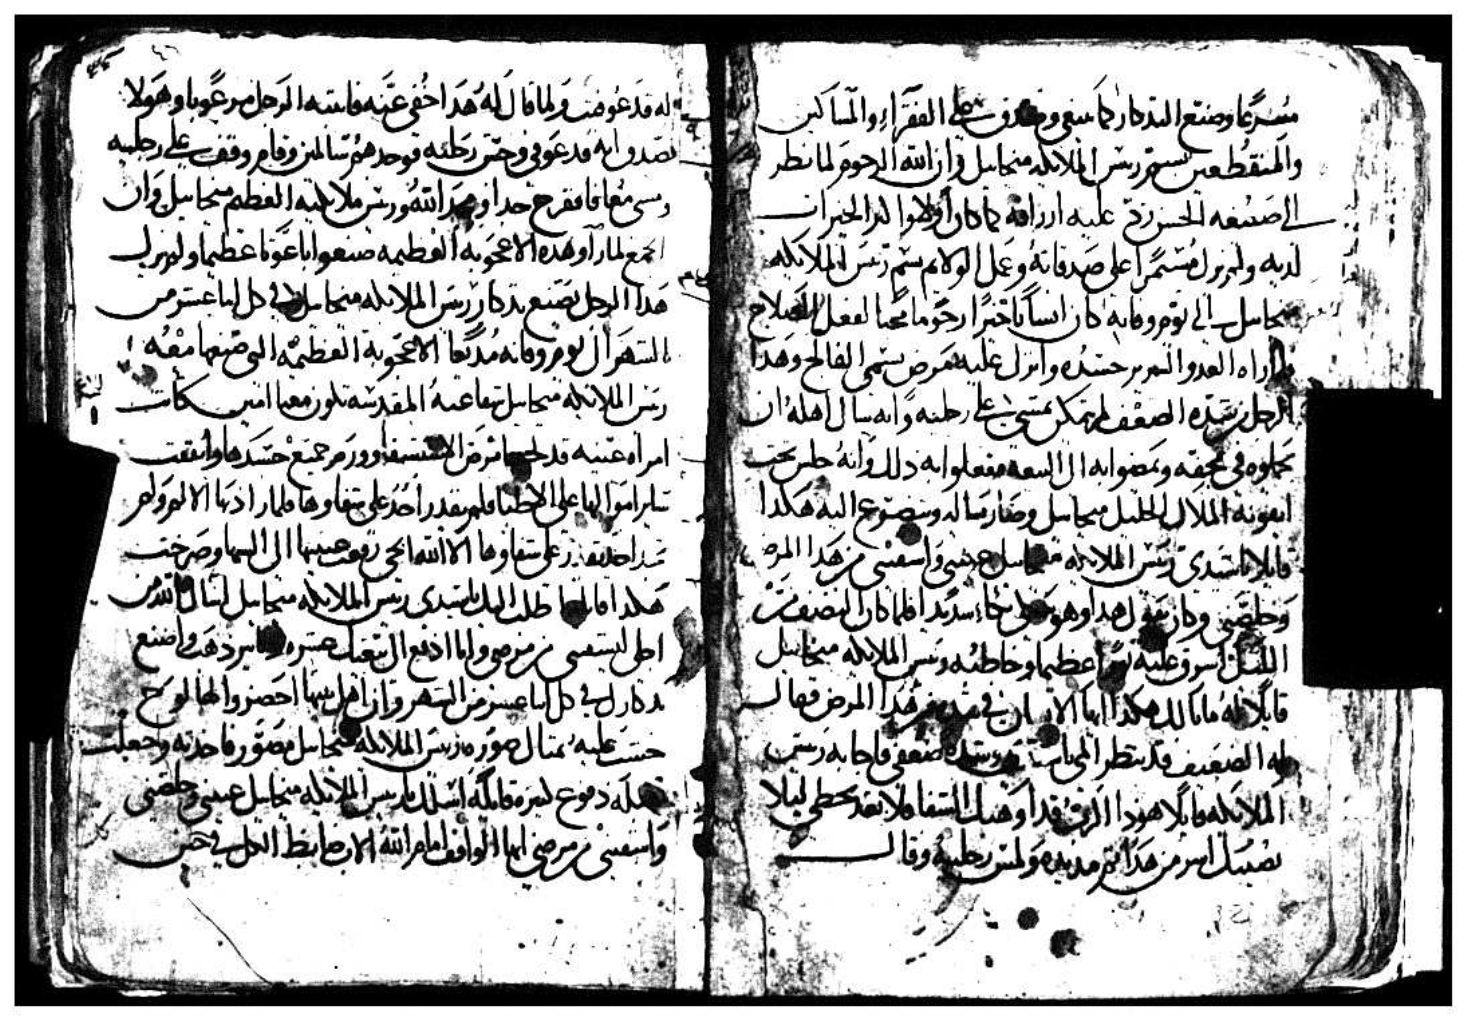 مسرعا وصنع التدكار كما ينبغي وصدق على الفقراء والمساكين
والمنقطعين بسم ريس الملايكه ميخاييل وان الله الرحوم لما نظر
الى صنيعه الحسن زد عليه ارزاقه كما كان اولا وازلد الخيرات
لديه ولم يزل مستمرا على صدقاته وعمل الولايم بسم ريس الملايكه
ميخاييل الى يوم وفاته كان انسانا خيرا رحوما محبا لفعل الصلاح
فلما راه العدو الشرير حسده وانزل عليه مرض يسمى الفالج وهدا
الرجل من شدة الضعف لم يتمكن يمشي على رجليه وانه سال اهله ان
يحملوه في محفه ويمضوا به الى البيعه ففعلوا به دلك وانه جلس تحت
ايقونة الملاك الجليل ميخاييل وصار يساله ويتضرع اليه هكدا
قايلا ياسيدي ريس الملايكه ميخاييل عيني واشفيني من هدا المرض
وخلصني وكان يقول هدا وهو يبكي بكاء شديدا فلما كان النصف من
الليل اشرق عليه نورا عظيما وخاطبه ريس الملايكه ميخاييل
قايلا له ما بالك هكدا ايها الانسان في شدة من هدا المرض فقال
له الضعيف قد ينظر الى شدة ضعفي فاجابه ريس
الملايكه قايلا هودا الرب قد اوهبك الشفا فلا تعد تخطي ليلا
يصيبك اشر من هدا ثم مد يده ولمس رجليه وقال
له قد عوفيت ولما قال له هدا اختفى عنه فانتبه الرجل مرعوبا وهو لا
يصدق انه قد عوفي وجس رجليه فوجدهم سالمين وقام ووقف على رجليه
ومشي معافا ففرح جدا ومجد الله وريس ملايكته العظيم ميخاييل وان
الجمع لما راوا هده الاعجوبه العظيمه صنعوا اغابو عظيما ولم يزل
هدا الرجل يصنع تدكار ريس الملايكه ميخاييل في كل اتنا عشر من
الشهر الى يوم وفاته مديعا الاعجوبه العظيمه التي صنعها معه
ريس الملايكه ميخاييل شفاعته المقدسه تكون معنا امين كانت
امراه غنيه قد لحقها مرض الاستسقا وورم جميع جسدها وانفقت
ساير اموالها على الاطبا فلم يقدر احد على شفاوها فلما زاد بها الالم ولم
تجد احد يقدر على شفاوها الا الله الحي رفعت عينيها الى السما وصرخت
هكدا قايله اطلب اليك ياسيدي ريس الملايكه ميخاييل اسال الله من
اجلي ليشفيني من مرضي وانا ادفع الى بيعتك عشره دنانير دهب واصنع
تدكارك في كل اتنا عشر من الشهر وان اهل بيتها احضروا لها لوح
خشب عليه تمثال صورة ريس الملايكه ميخاييل مصور فاخدته وجعلت
تبله دموع غزيره قايله اسالك ياريس الملايكه ميخاييل عيني وخلصني
واشفيني من مرضي ايها الواقف امام الله الاب ضابط الكل في حين